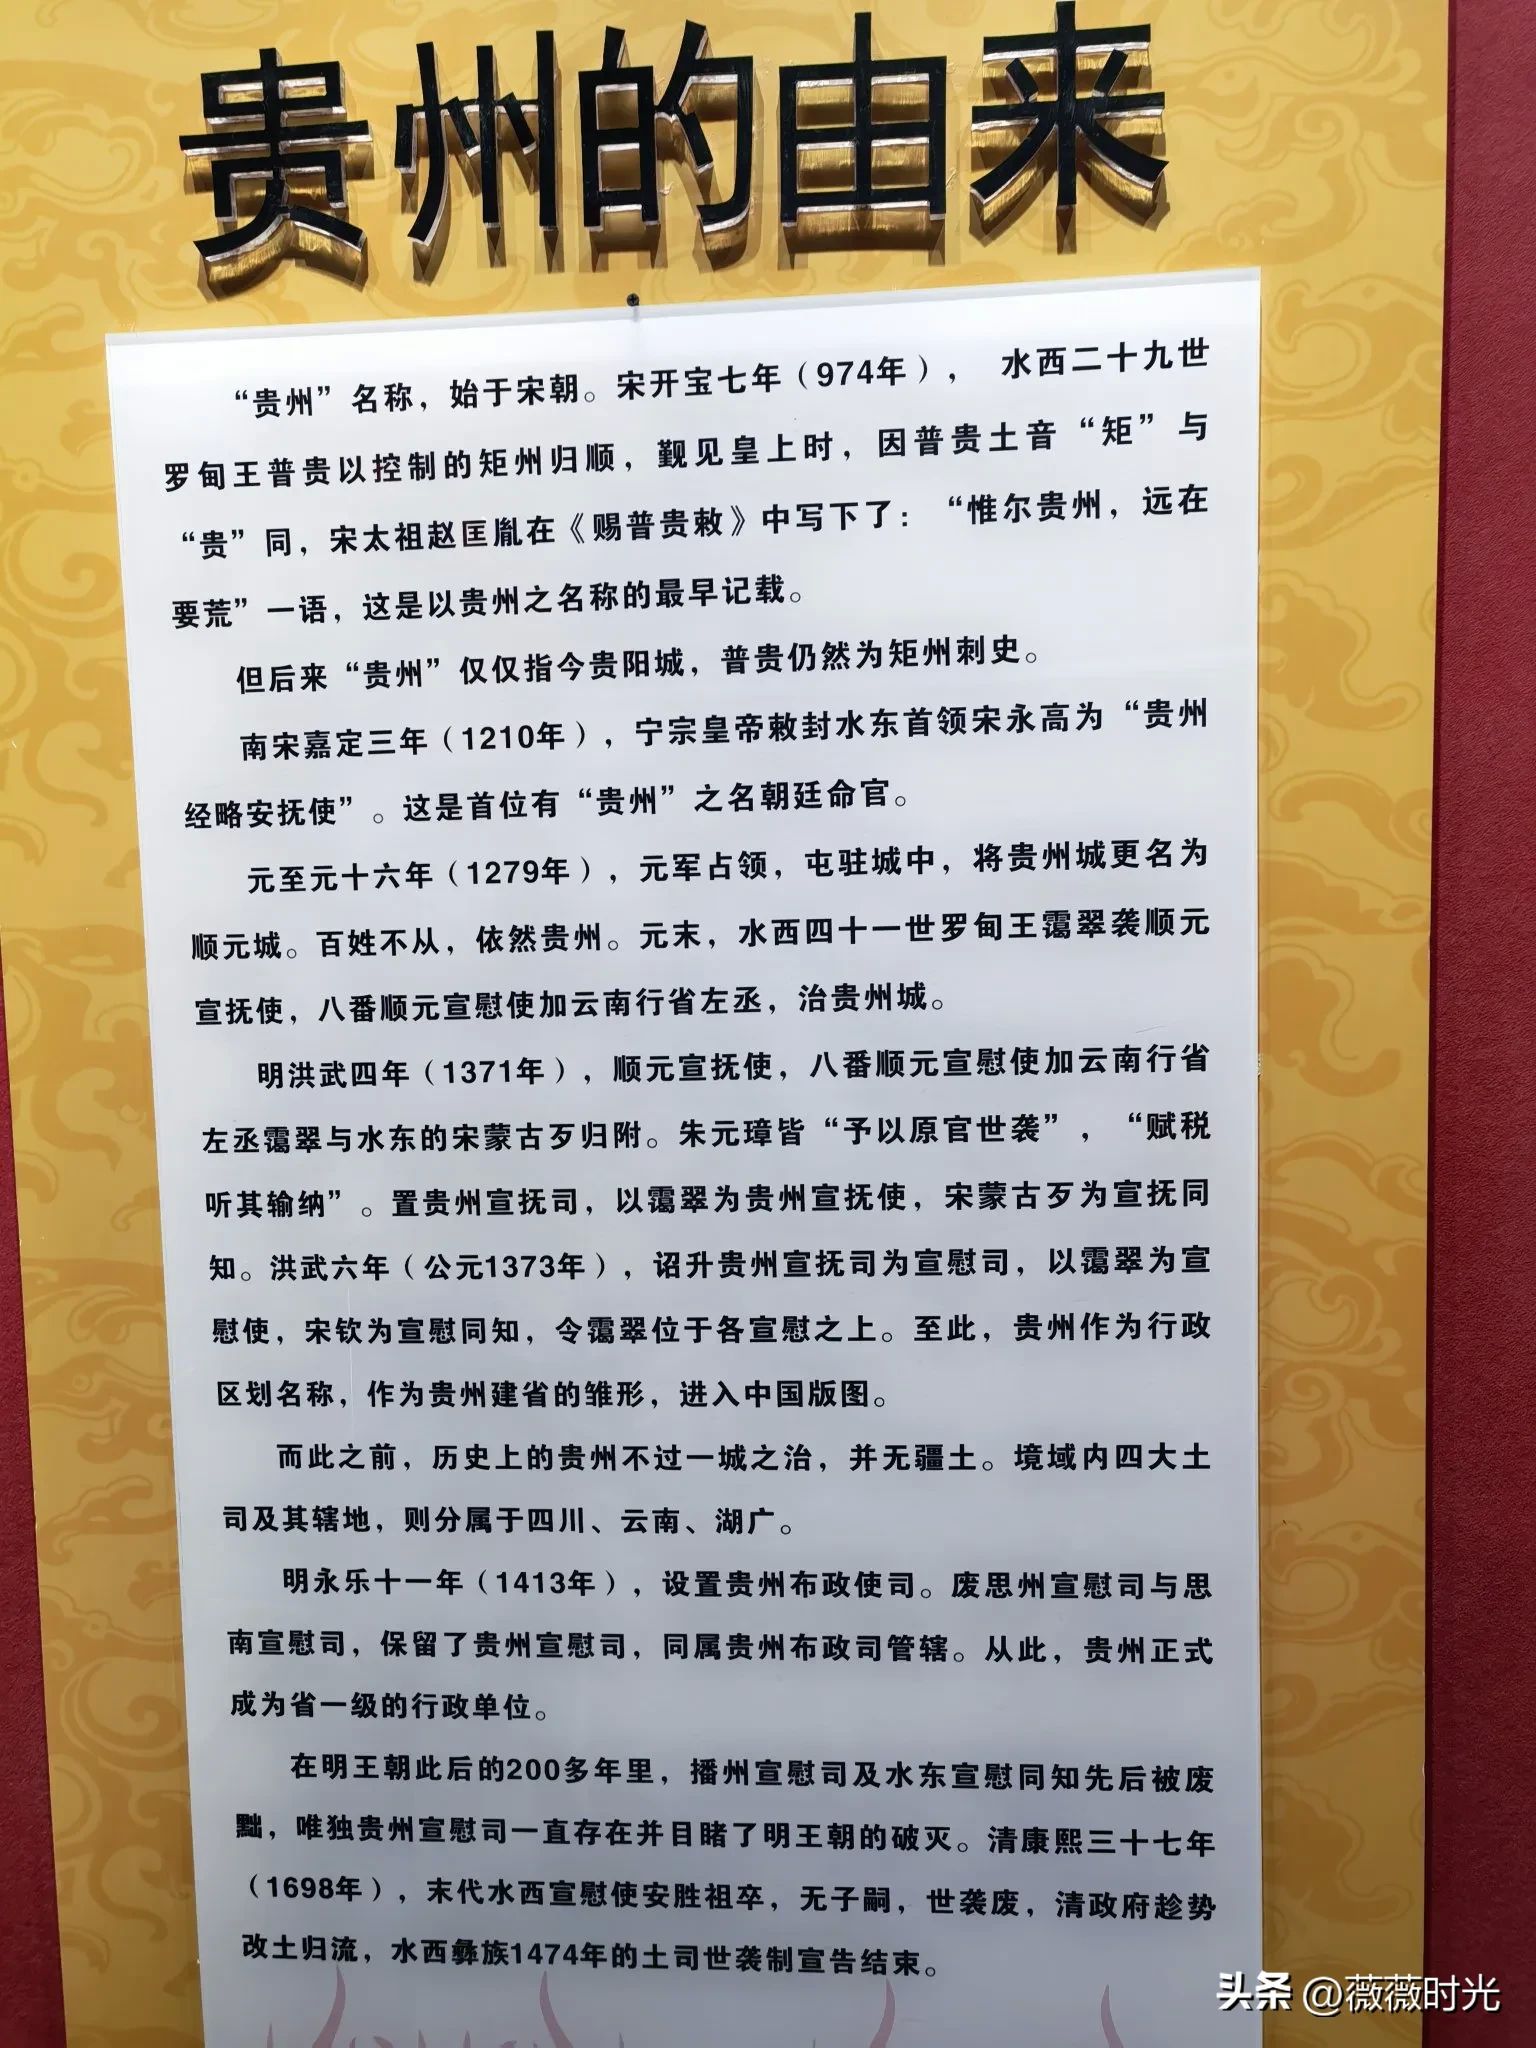 贵州的由来
“贵州”名称，始于宋朝。宋开宝七年（974年）， 水西二十九世
罗甸王普贵以控制的矩州归顺，觐见皇上时，因普贵土音“矩”与
“贵”同，宋太祖赵匡胤在《赐普贵敕》中写下了：“惟尔贵州，远在
要荒”一语，这是以贵州之名称的最早记载。
但后来“贵州”仅仅指今贵阳城，普贵仍然为矩州刺史。
南宋嘉定三年（1210年），宁宗皇帝敕封水东首领宋永高为“贵州
经略安抚使”。这是首位有“贵州”之名朝廷命官。
元至元十六年（1279年），元军占领，屯驻城中，将贵州城更名为
顺元城。百姓不从，依然贵州。元末，水西四十一世罗甸王霭翠袭顺元
宣抚使，八番顺元宣慰使加云南行省左丞，治贵州城。
明洪武四年（1371年），顺元宣抚使，八番顺元宣慰使加云南行省
左丞霭翠与水东的宋蒙古歹归附。朱元璋皆“予以原官世袭”，“赋税
听其输纳”。置贵州宣抚司，以霭翠为贵州宣抚使，宋蒙古歹为宣抚同
知。洪武六年（公元1373年），诏升贵州宣抚司为宣慰司，以霭翠为宣
慰使，宋钦为宣慰同知，令霭翠位于各宣慰之上。至此，贵州作为行政
区划名称，作为贵州建省的雏形，进入中国版图。
而此之前，历史上的贵州不过一城之治，并无疆土。境域内四大土
司及其辖地，则分属于四川、云南、湖广。
明永乐十一年（1413年），设置贵州布政使司。废思州宣慰司与思
南宣慰司，保留了贵州宣慰司，同属贵州布政司管辖。从此，贵州正式
成为省一级的行政单位。
在明王朝此后的200多年里，播州宣慰司及水东宣慰同知先后被废
黜，唯独贵州宣慰司一直存在并目睹了明王朝的破灭。清康熙三十七年
（1698年），末代水西宣慰使安胜祖卒，无子嗣，世袭废，清政府趁势
改土归流，水西彝族1474年的土司世袭制宣告结束。
头条 @薇薇时光